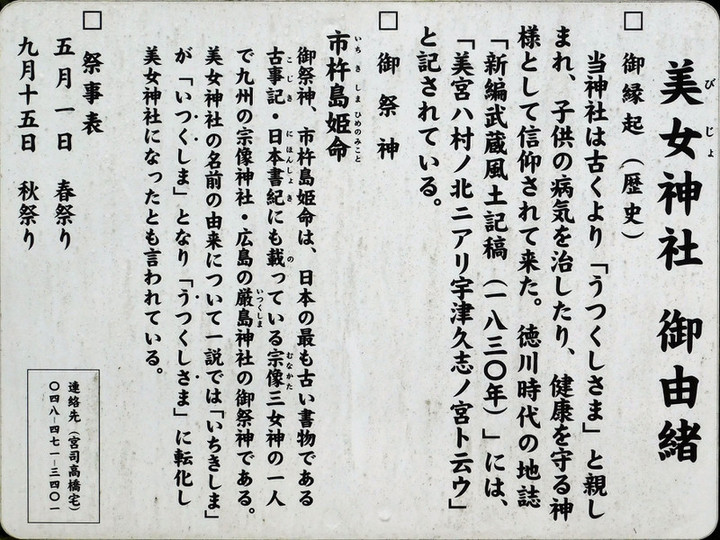 美女神社　御由緒
びじょ
□　御縁起（歴史）
当神社は古くより「うつくしさま」と親し
まれ、子供の病気を治したり、健康を守る神
様として信仰されて来た。徳川時代の地誌
「新編武蔵風土記稿（一八三〇年）」には、
「美宮ハ村ノ北ニアリ宇津久志ノ宮ト云ウ」
と記されている。
□　御祭神
市杵島姫命
いちきしまひめのみこと
御祭神、市杵島姫命は、日本の最も古い書物である
古事記・日本書紀にも載っている宗像三女神の一人
こじき　にほんしょき　の　むなかた
で九州の宗像神社・広島の厳島神社の御祭神である。
いつくしま
美女神社の名前の由来について一説では「いちきしま」
が「いつくしま」となり「うつくしさま」に転化し
美女神社になったとも言われている。
□　祭事表
五月一日　春祭り
九月十五日　秋祭り
連絡先（宮司高橋宅）
〇四八―四七一―三四〇一